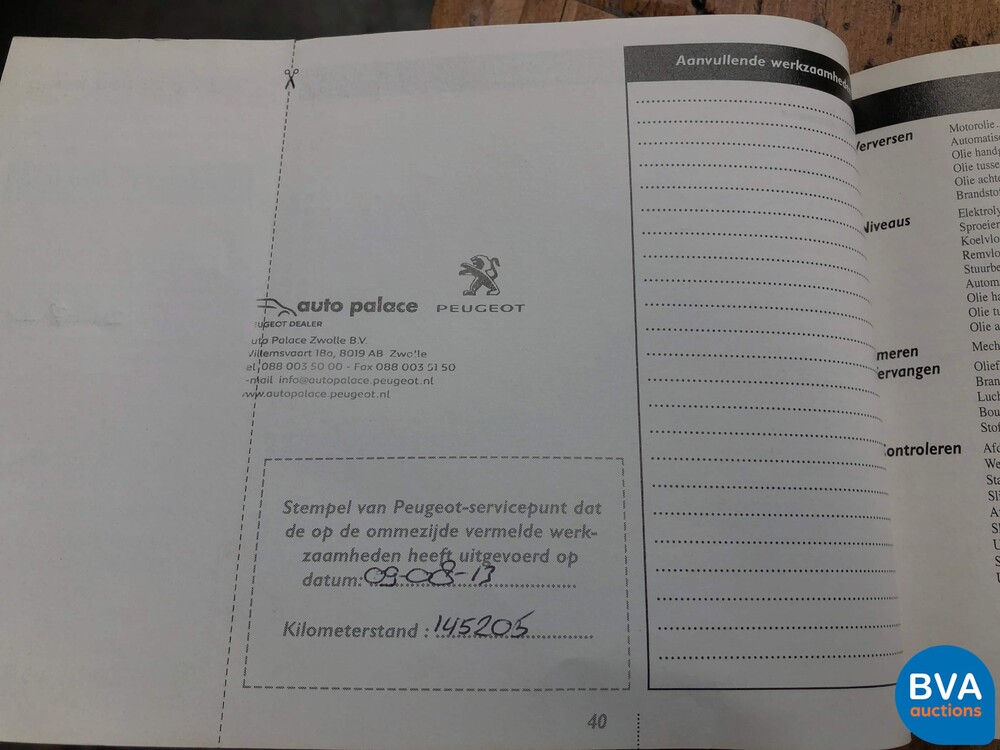 auto palace
PEUGEOT DEALER
PEUGEOT
Auto Palace Zwolle B.V.
Willemsvaart 18a, 8019 AB Zwolle
Tel. 088 003 50 00 - Fax 088 003 51 50
E-mail info@autopalace.peugeot.nl
www.autopalace.peugeot.nl
Stempel van Peugeot-servicepunt dat
de op de ommezijde vermelde werk-
zaamheden heeft uitgevoerd op
datum: 09-08-13
Kilometerstand : 145205
40
Aanvullende werkzaamhede
Verversen
Motorolie
Automatis
Olie handg
Olie tusse
Olie achte
Brandsto
Niveaus
Elektroly
Sproeier
Koelvlo
Remvlo
Stuurbe
Autom
Olie ha
Olie tu
Olie a
meren
Mech
ervangen
Olief
Bran
Luch
Bou
Stof
Controleren
Afd
We
Sta
Sli
BVA
auctions